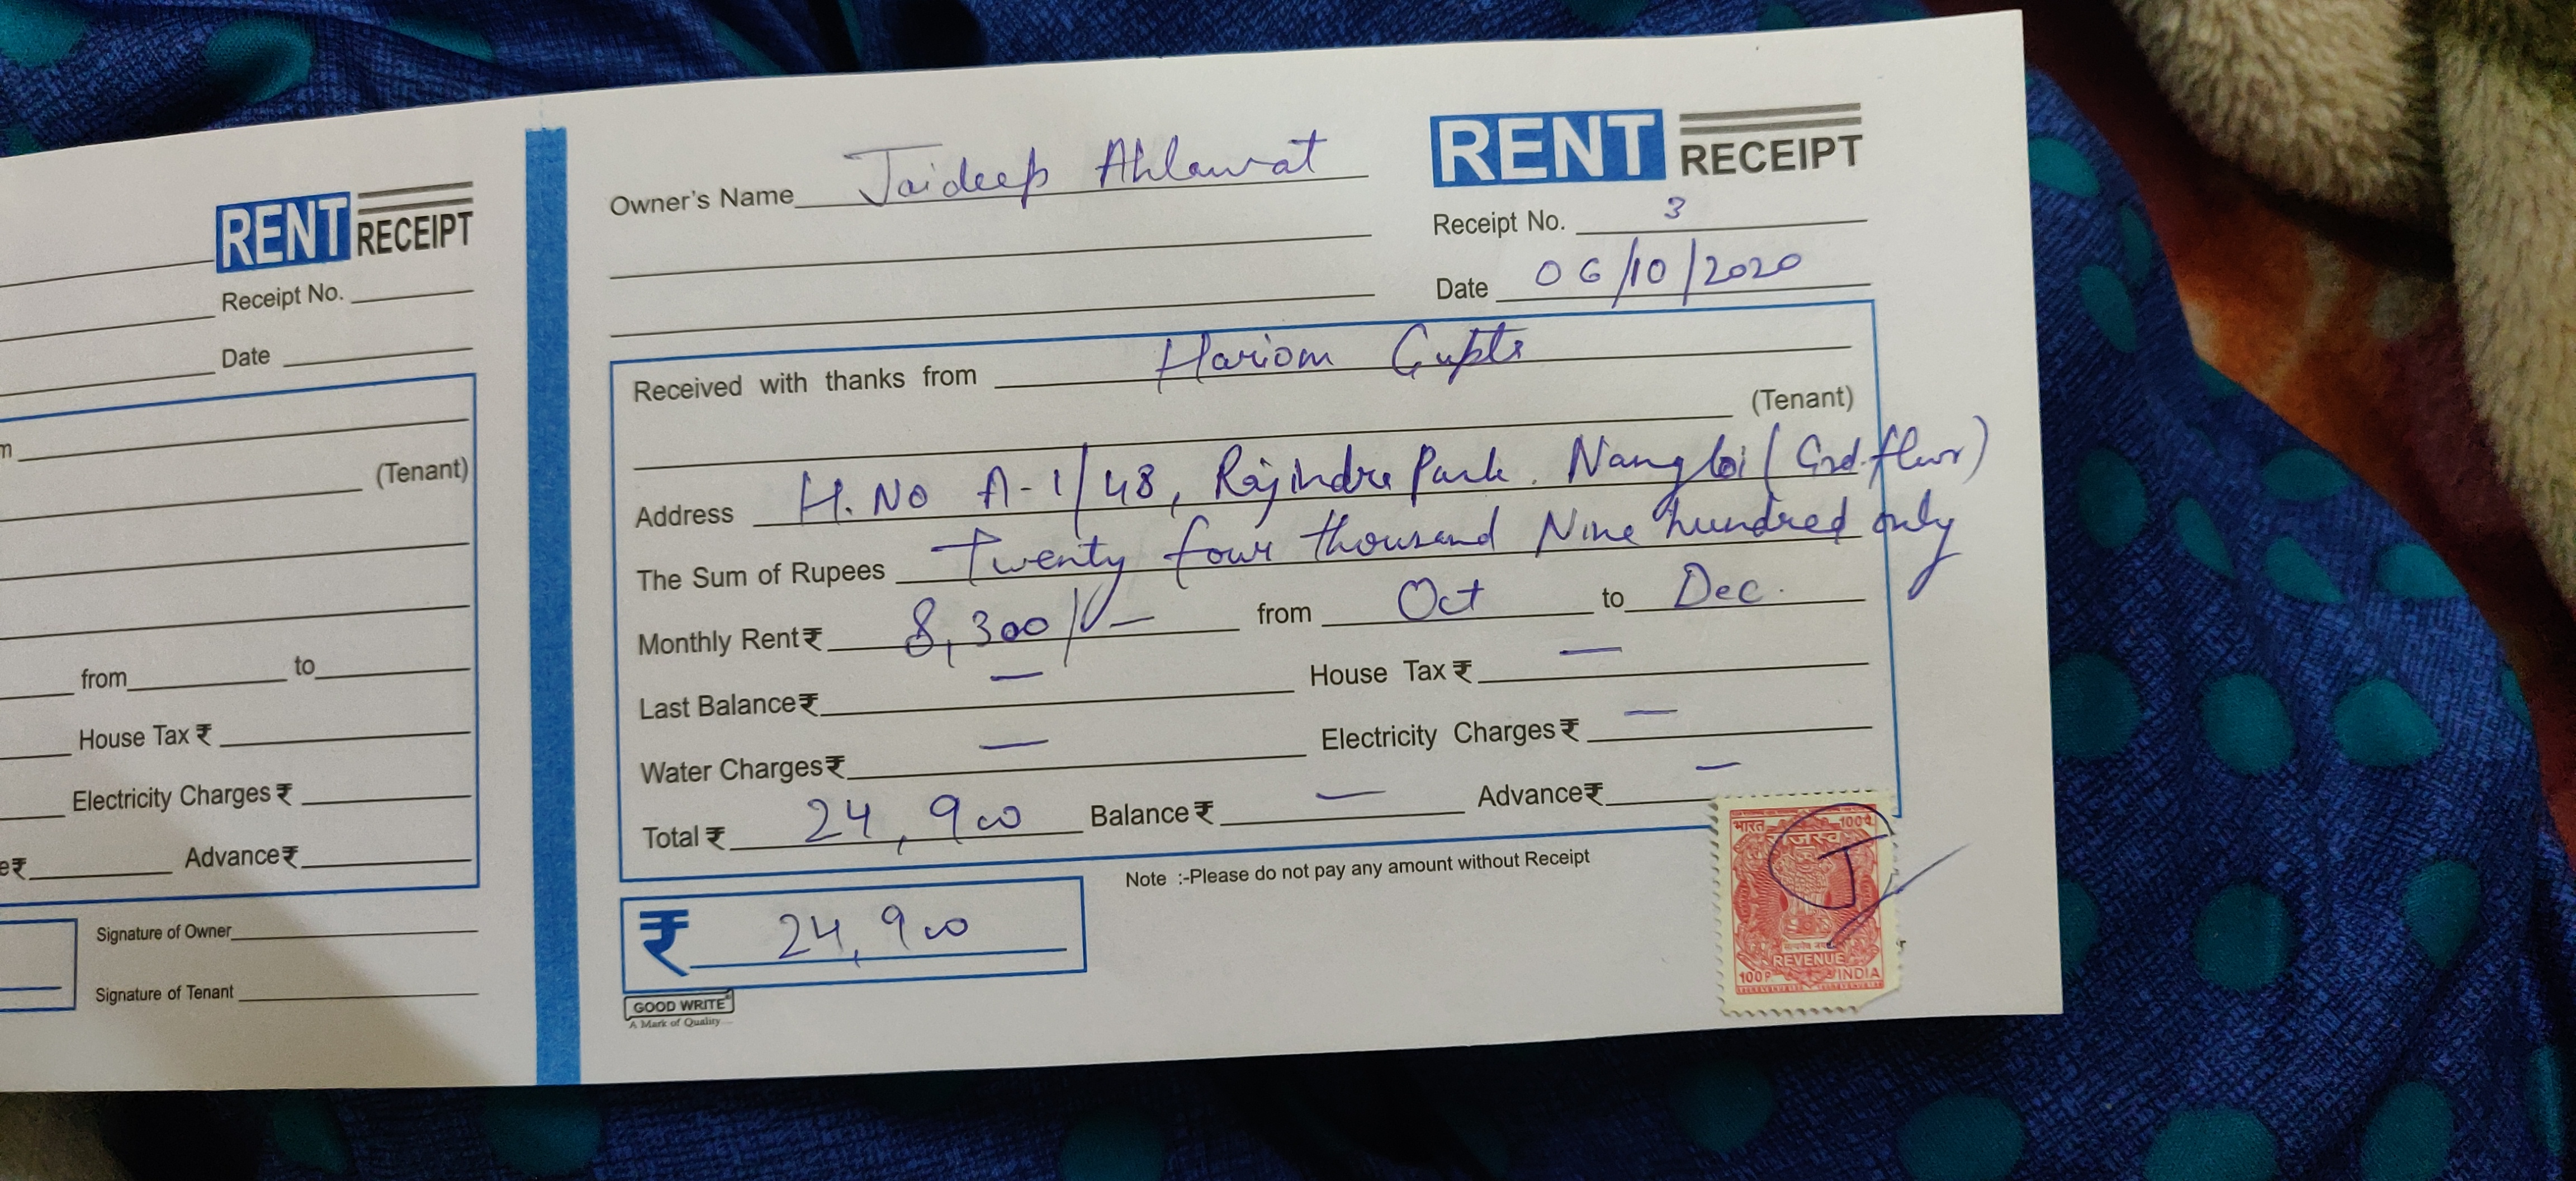 RENT RECEIPT
Receipt No.
Date
(Tenant)
from to
House Tax ₹
Electricity Charges ₹
Advance ₹
Signature of Owner
Signature of Tenant
RENT RECEIPT
Owner's Name Jaideep Ahlawat Receipt No. 3
Date 06/10/2020
Received with thanks from Hariom Gupta
(Tenant)
Address H. No A-1/48, Rajindra Park, Nangloi (Grd. floor)
The Sum of Rupees Twenty four thousand Nine hundred only
Monthly Rent ₹ 8,300/- from Oct to Dec.
Last Balance ₹ — House Tax ₹ —
Water Charges ₹ — Electricity Charges ₹ —
Total ₹ 24,900 Balance ₹ — Advance ₹ —
₹ 24,900
Note :-Please do not pay any amount without Receipt
GOOD WRITE
A Mark of Quality
भारत
100P REVENUE INDIA